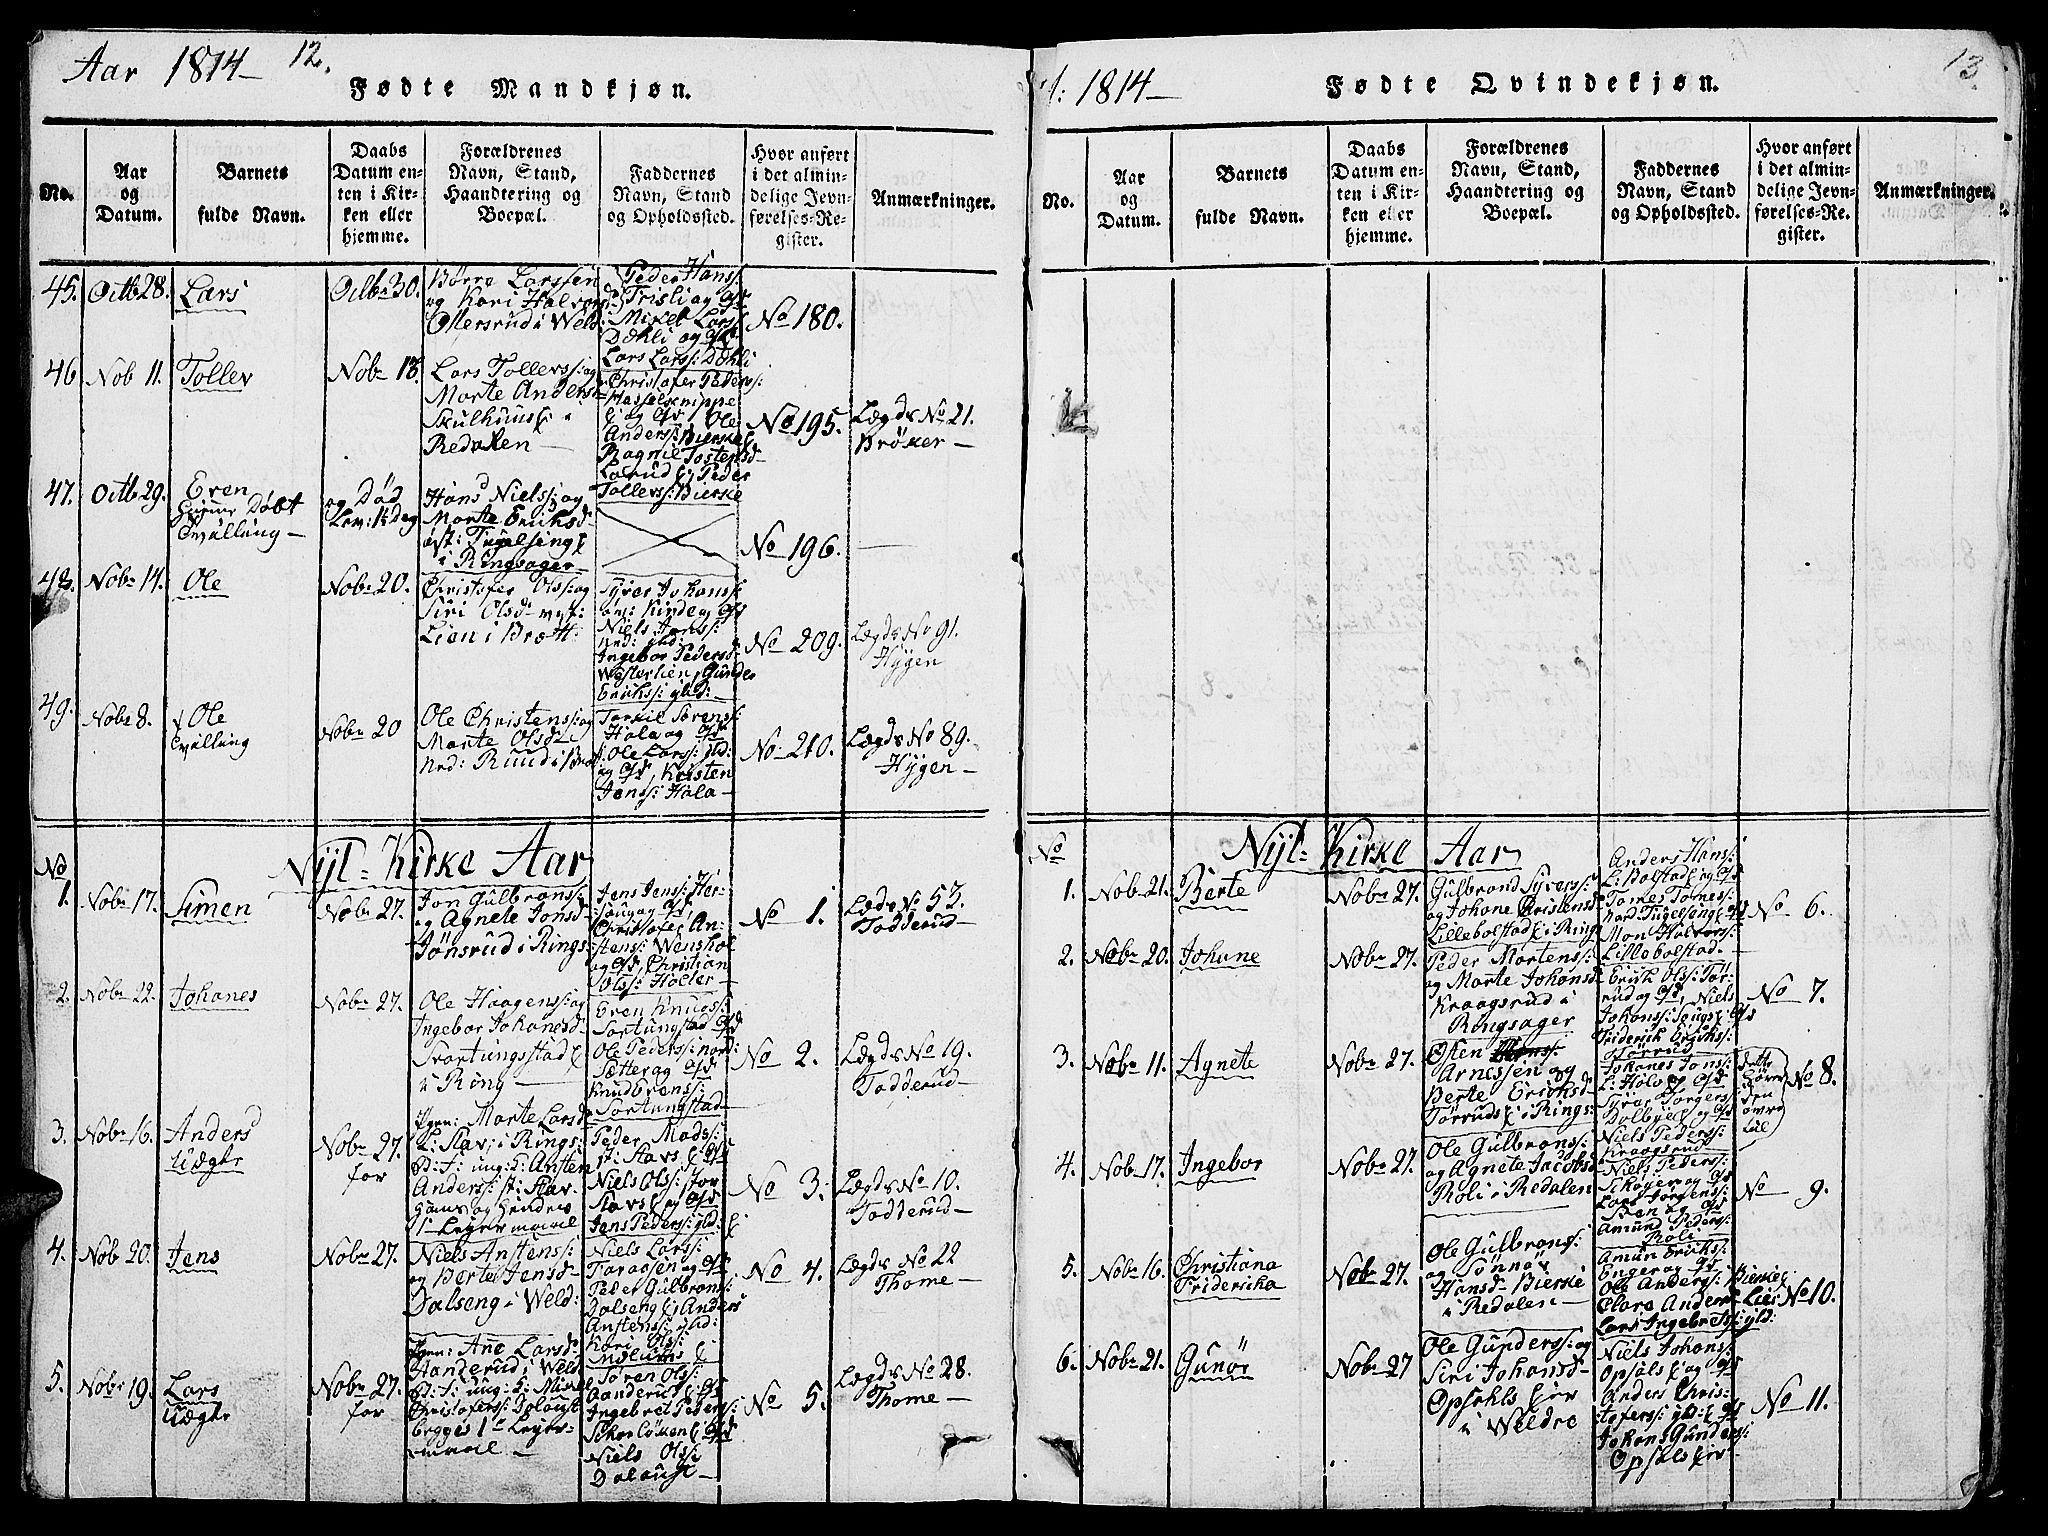 Aar 1814 12.
Fødte Mandkjøn.
No.
Aar
og
Datum.
Barnets
fulde Navn.
Daabs
Datum en-
ten i Kir-
ken eller
hjemme.
Forældrenes
Navn, Stand,
Haandtering og
Boepæl.
Faddernes
Navn, Stand
og Opholdssted.
Hvor anført
i det almin-
delige Jevn-
førelses-Re-
gister.
Anmærkninger.
45. Octb 28. Lars
Octbr 30.
Børre Larssen
og Kari Halvors
Ollersrud i Weld:
Peder Hans:
Frisli og
Mikel Lars:
Dæhli og
Lars Lars: Dæhli
No 180.
46 Nob 11. Tollev
Nobr 13.
Lars Tollevs: og
Marte Anders
Skulhuus
Redalen
Christofer Peders:
Hasselknippe
og Ole
Anders: Bierke
Ragnil Tostensd
Larud Peder
Tollevs: Bierke
No 195.
Lægds No 21.
Brøker
47. Octb 29. Even
Døbt
Tvilling
og Død
Lev: 1½ Dag
Hans Niels: og
Marte Eriksd
i Ringsager
No 196.
48. Nobr 14. Ole
Nobr 20.
Christofer Ols: og
Siri Olsd
Lien i Brøtt:
Syver Johans:
Niels Jens:
Ingebor Pedersd
Westerlien, Gunder
Eriks: gld:
No 209.
Lægds No 91.
Hygen
49. Nobr 8. Ole
Tvilling
Nobr 20
Ole Christens: og
Marte Olsd
Ned: Ruud i Brøt
Torkil Sørens:
Hala og
Ole Lars: gld:
og Kristen
Jens: Hala
No: 210.
Lægds No 89.
Hygen
Nyl: Kirke Aar
No
1. Nobr 17. Simen
Nobr 27.
Jon Gulbrans:
og Agnete Jonsd
Jønsrud i Rings
Jens Jens: Har-
Christofer An-
stens: Wenshol
og Christian
Ols: Holter
No 1.
Lægds No 53.
Todderud
2. Nobr 22. Johanes
Nobr 27.
Ole Haagens: og
Ingebor Johanesd
Svartungstad
i Ring
Even Knuds:
Sortungstad
Ole Peders: nord:
Sætter og
Knud Evens:
Sortungstad
No 2.
Lægds No 19.
Todderud
3. Nobr 16. Anders
Uægte
Nobr 27.
for
Pgen: Marte Larsd
L: Slav: i Rings:
B: F: ung: K: Ansten
Anders: st: Slav
Hans og Hendes
1te Leyermaal
Peder Mads:
st: Slavs
Niels Ols: stor
Slavs og
Jens Peders: gld:
No 3.
Lægds No 10.
Todderud
4. Nob 20. Jens
Nobr 27.
Niels Anstens:
og Berte Jensd
Dalseng i Weld:
Niels Lars:
Faraasen og
Peder Gulbrans
Dalseng Anders
Anstens: gld:
Kari Ols:
No 4.
Lægds No 22
Thome
5. Nobr 19. Lars
Uægte
Nobr 27.
for
Pgen: Ane Larsd
Aanderud i Weld
B: F: ung: K: Mikel
Christofers: Dolaust
begges 1te Leyer-
maal
Søren Ols:
Aanderud
Ingebret Peders:
Skarløken
Niels Ols:
Dolaust
No 5.
Lægds No 28.
Thome
A: 1814
Fødte Qvindekjøn.
13.
No.
Aar
og
Datum.
Barnets
fulde Navn.
Daabs
Datum en-
ten i Kir-
ken eller
hjemme.
Forældrenes
Navn, Stand,
Haandtering og
Boepæl.
Faddernes
Navn, Stand
og Opholdssted.
Hvor anført
i det almin-
delige Jevn-
førelses-Re-
gister.
Anmærkninger.
Nyl: Kirke Aar
No
1. Nob 21. Berte
Nobr 27.
Gulbrand Syvers:
og Johane Christensd
Lillebolstad i Ring
Anders Hans:
L: Bolstad og
Tomes Tomes:
Mon Halvors:
Lillebolstad
No 6.
2. Nobr 20. Johane
Nobr 27.
Peder Mortens:
og Marte Johansd
Kraagsrud i
Ringsager
Erik Ols: Tør-
rud og Niels
Johans:
Friderik Eriks:
Tørrud
No 7.
3. Nobr 11. Agnete
Nobr 27.
Østen
Arnessen og
Berte Eriksd
Tørruds i Rings:
Johanes Jons:
Syver Torgers:
Dolbye og
Niels Peders:
Kraagsrud
dette
hører
den
øvre
til
No 8.
4. Nob 17. Ingebor
Nobr 27.
Ole Gulbrans:
og Agnete Jacobsd
Roli i Redalen
Niels Peders:
Skøyer og
Lars Jørgens:
Amund Peders:
Roli
No 9.
5. Nobr 16. Christiana
Friderica
Nobr 27.
Ole Gulbrans:
og Sønnøv
Hansd Bierke
i Redalen
Amun Eriks:
Enger og
Ole Anders: Bierke
Clara Anders
Lars Ingebrets: gld:
No 10.
6. Nobr 21. Gunør
Nobr 27
Ole Gunders: og
Siri Johansd
Opsahls
i Weldre
Niels Johans:
Opsals og
Anders Chris-
tofers: gld:
Johans Gunders:
Opsals
No 11.